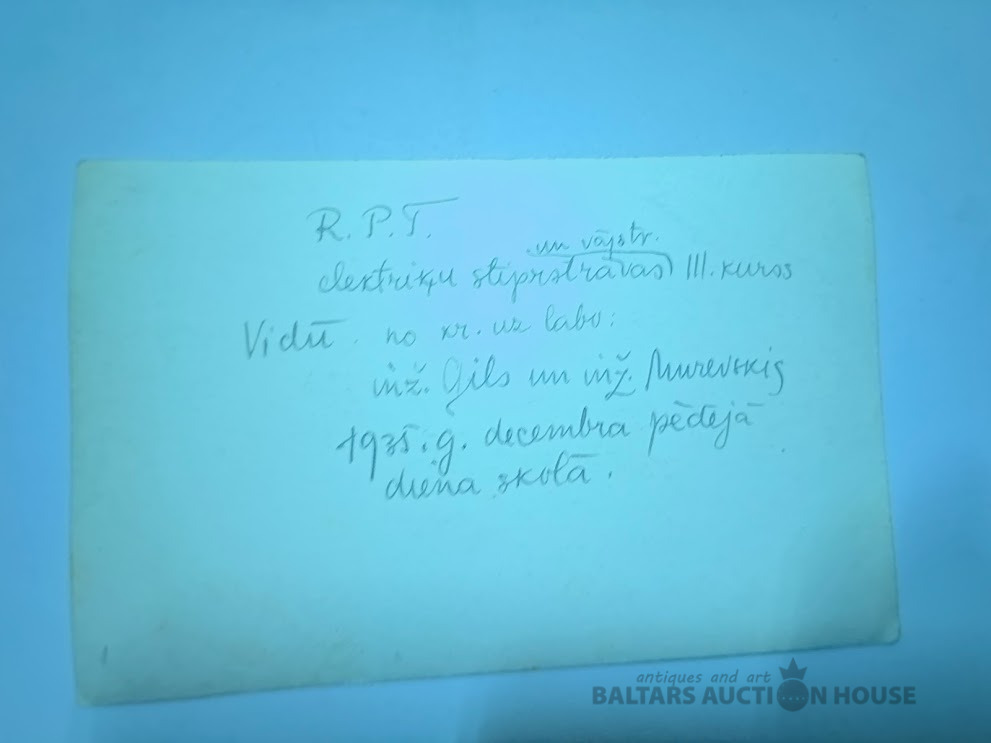 R. P. T.
un vājstr.
elektriķu stiprstrāvas III. kurss
Vidū. no kr. uz labo:
inž. Gils un inž. Murevskis
1935. g. decembra pēdējā
diena skolā.
antiques and art
BALTARS AUCTION HOUSE